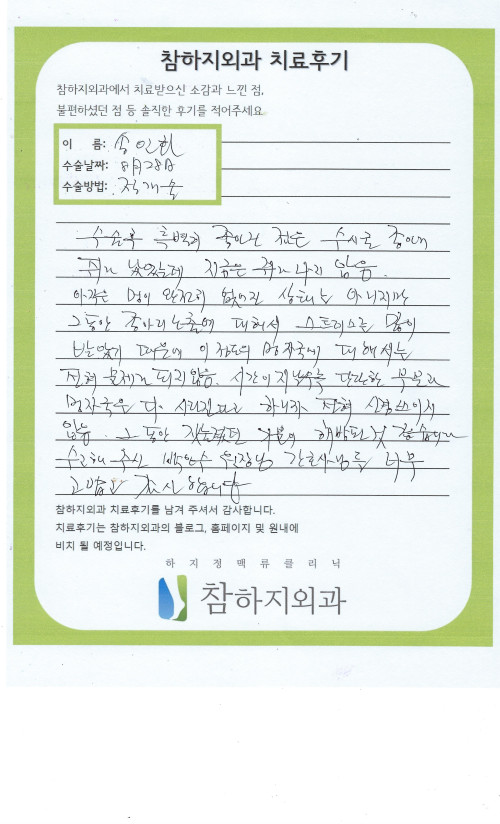 참하지외과 치료후기
참하지외과에서 치료받으신 소감과 느낀 점,
불편하셨던 점 등 솔직한 후기를 적어주세요.
이 름: 송인회
수술날짜: 8月28日
수술방법: 절개술
수술후 특별히 좋아진 점은 수시로 종아리
쥐가 났었는데 지금은 쥐가 나지 않음.
아직은 멍이 완전히 없어진 상태는 아니지만
그동안 종아리 노출에 대해서 스트레스를 많이
받았기 때문에 이정도의 멍자국에 대해서는
전혀 문제가 되지않음. 시간이 지날수록 단단한 부분과
멍자국은 다 사라진다고 하니까 전혀 신경쓰이지
않음. 그동안 짓눌렸던 기분이 해방된 것 같습니다
수고해 주신 원장님 간호사님들 너무
고맙고 감사합니다
참하지외과 치료후기를 남겨 주셔서 감사합니다.
치료후기는 참하지외과의 블로그, 홈페이지 및 원내에
비치 될 예정입니다.
하지정맥류클리닉
참하지외과